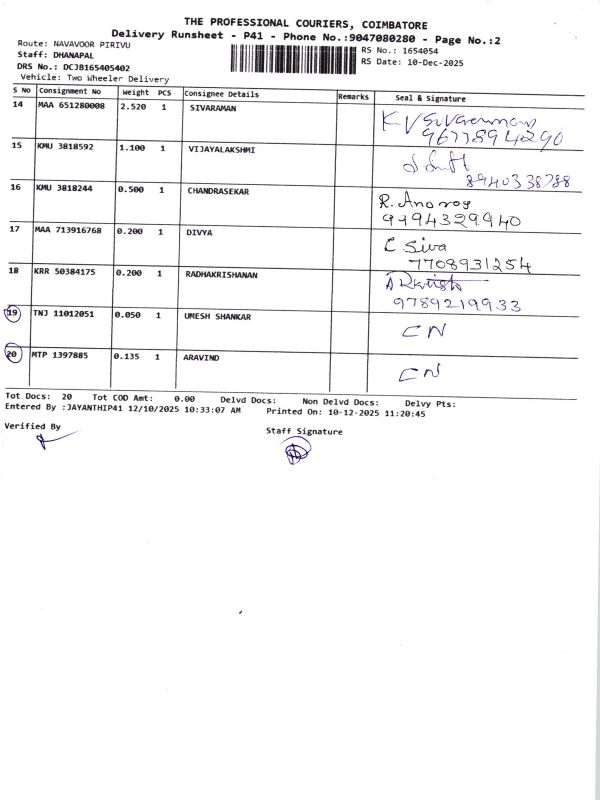 THE PROFESSIONAL COURIERS, COIMBATORE
Delivery Runsheet - P41 - Phone No.:9047080280 - Page No.:2
Route: NAVAVOOR PIRIVU
Staff: DHANAPAL
DRS No.: DCJB165405402
Vehicle: Two Wheeler Delivery
RS No.: 1654054
RS Date: 10-Dec-2025
S No Consignment No Weight PCS Consignee Details Remarks Seal & Signature
14 MAA 651280008 2.520 1 SIVARAMAN
9677894290
15 KMU 3818592 1.100 1 VIJAYALAKSHMI
8940338788
16 KMU 3818244 0.500 1 CHANDRASEKAR R.
9194329940
17 MAA 713916768 0.200 1 DIVYA C Siva
7708931254
18 KRR 50384175 0.200 1 RADHAKRISHANAN
9789219933
19 TNJ 11012051 0.050 1 UMESH SHANKAR CN
20 MTP 1397885 0.135 1 ARAVIND CN
Tot Docs: 20 Tot COD Amt: 0.00 Delvd Docs: Non Delvd Docs: Delvy Pts:
Entered By :JAYANTHIP41 12/10/2025 10:33:07 AM Printed On: 10-12-2025 11:20:45
Verified By
Staff Signature